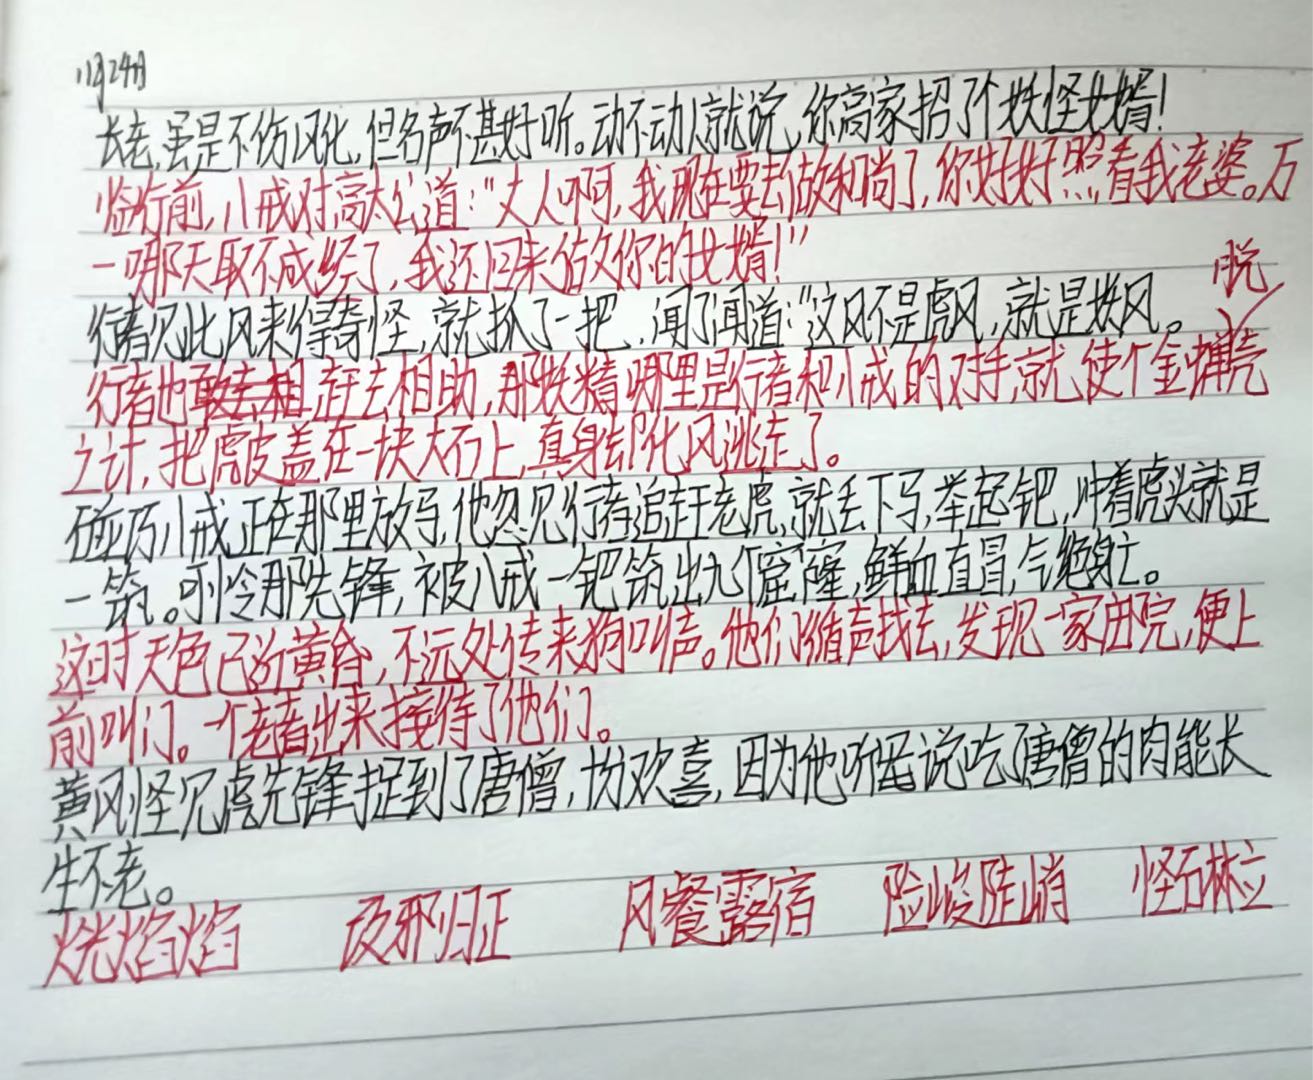 11月24日
长老,虽是不伤风化,但名声不甚好听。动不动人就说,你高家招了个妖怪女婿!
临行前,八戒对高太公道:“丈人啊,我现在要去做和尚了,你好好照看我老婆。万
一哪天取不成经了,我还回来做你的女婿!”
脱
行者见此风来得奇怪,就抓了一把,闻了闻道:“这风不是虎风,就是妖风。
行者也赶去相助,那妖精哪里是行者和八戒的对手,就使个金蝉壳
之计,把虎皮盖在一块大石上,真身却化风逃走了。
碰巧八戒正在那里放马,他忽见行者追赶老虎,就丢下马,举起钯,冲着虎头就是
一筑。可怜那先锋,被八戒一钯筑出九个窟窿,鲜血直冒,气绝身亡。
这时天色已近黄昏,不远处传来狗叫声。他们循声找去,发现一家田院,便上
前叫门。一个老者出来接待了他们。
黄风怪见虎先锋捉到了唐僧,十分欢喜,因为他听说吃了唐僧的肉能长
生不老。
光焰焰 改邪归正 风餐露宿 险峻陡峭 怪石林立